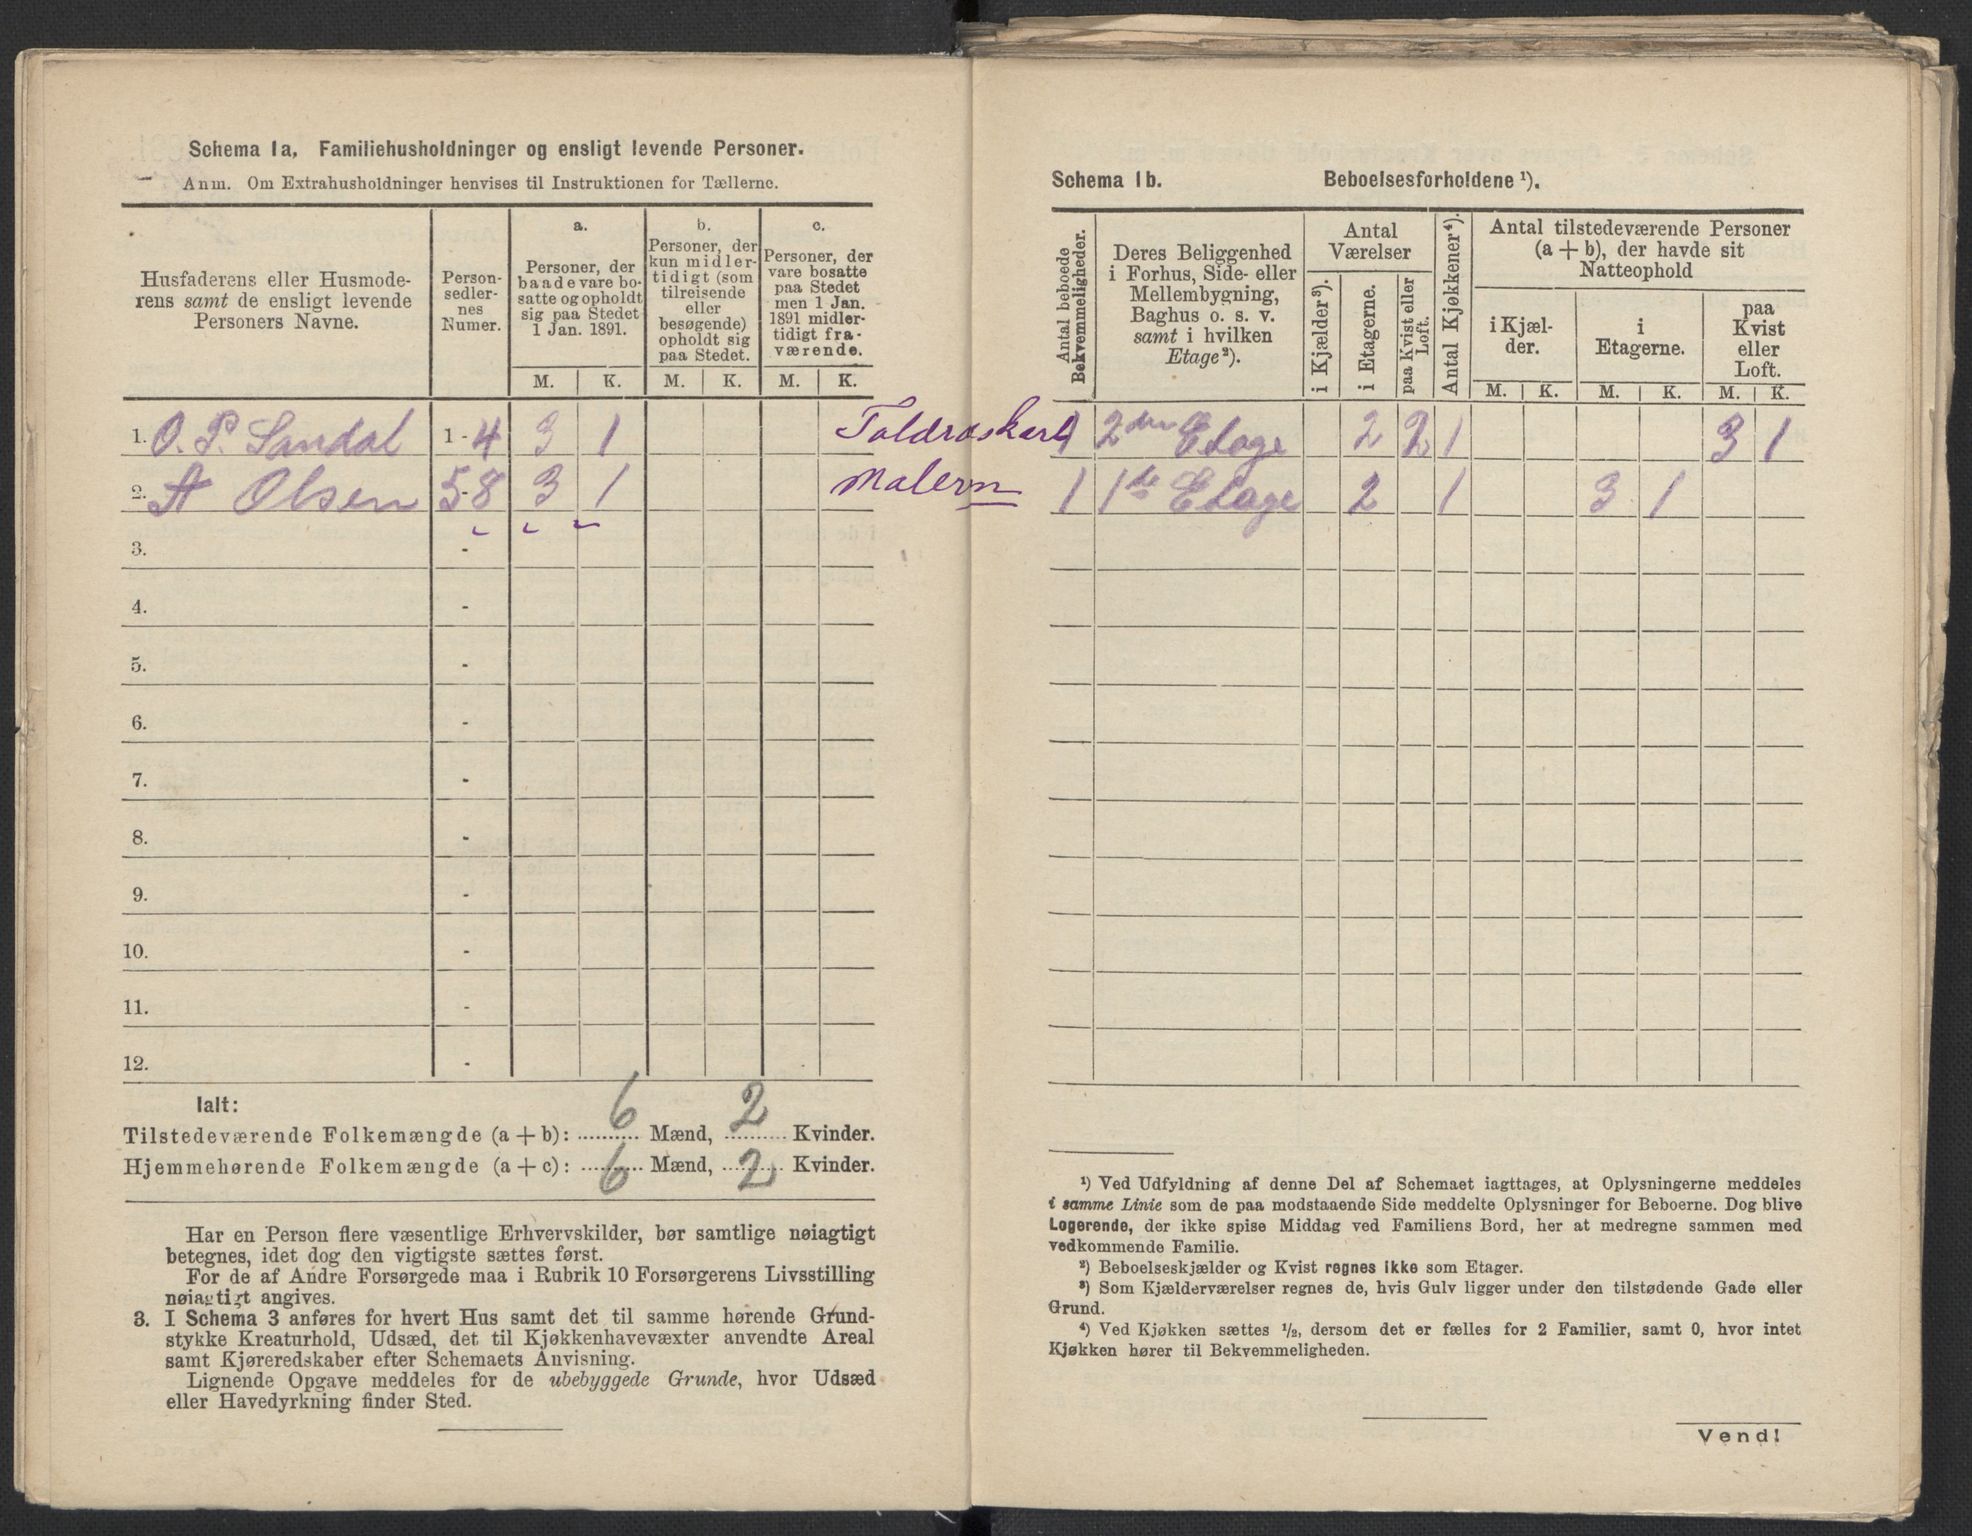 Schema 1a. Familiehusholdninger og ensligt levende Personer.
Anm. Om Extrahusholdninger henvises til Instruktionen for Tællerne.
Husfaderens eller Husmode-
rens samt de ensligt levende
Personers Navne.
Person-
sedler-
nes
Numer.
a.
Personer, der
baade vare bo-
satte og opholdt
sig paa Stedet
1 Jan. 1891.
b.
Personer, der
kun midler-
tidigt (som
tilreisende
eller
besøgende)
opholdt sig
paa Stedet.
c.
Personer, der
vare bosatte
paa Stedet
men 1 Jan.
1891 midler-
tidigt fra-
værende.
M. K. M. K. M. K.
1. O. P. Sandal 1-4 3 1
2. A Olsen 5-8 3 1
3. -
4. -
5. -
6. -
7. -
8. -
9. -
10. -
11. -
12. -
Ialt:
Tilstedeværende Folkemængde (a + b): 6 Mænd, 2 Kvinder.
Hjemmehørende Folkemængde (a + c): 6 Mænd, 2 Kvinder.
Har en Person flere væsentlige Erhvervskilder, bør samtlige nøiagtigt
betegnes, idet dog den vigtigste sættes først.
For de af Andre Forsørgede maa i Rubrik 10 Forsørgerens Livsstilling
nøiagtigt angives.
3. I Schema 3 anføres for hvert Hus samt det til samme hørende Grund-
stykke Kreaturhold, Udsæd, det til Kjøkkenhavevæxter anvendte Areal
samt Kjøreredskaber efter Schemaets Anvisning.
Lignende Opgave meddeles for de ubebyggede Grunde, hvor Udsæd
eller Havedyrkning finder Sted.
Schema 1b. Beboelsesforholdene ¹).
Antal beboede
Bekvemmeligheder.
Deres Beliggenhed
i Forhus, Side- eller
Mellembygning,
Baghus o. s. v.
samt i hvilken
Etage²).
Antal
Værelser
i Kjælder³).
i Etagerne.
paa Kvist eller
Loft.
Antal Kjøkkener⁴).
Antal tilstedeværende Personer
(a + b), der havde sit
Natteophold
i Kjæl-
der.
i
Etagerne.
paa
Kvist
eller
Loft.
M. K. M. K. M. K.
Toldroskarl 1 2den Etage 2 2 1 3 1
Malern 1 1te Etage 2 1 3 1
¹) Ved Udfyldning af denne Del af Schemaet iagttages, at Oplysningerne meddeles
i samme Linie som de paa modstaaende Side meddelte Oplysninger for Beboerne. Dog blive
Logerende, der ikke spise Middag ved Familiens Bord, her at medregne sammen med
vedkommende Familie.
²) Beboelseskjælder og Kvist regnes ikke som Etager.
³) Som Kjælderværelser regnes de, hvis Gulv ligger under den tilstødende Gade eller
Grund.
⁴) Ved Kjøkken sættes ½, dersom det er fælles for 2 Familier, samt 0, hvor intet
Kjøkken hører til Bekvemmeligheden.
Vend!